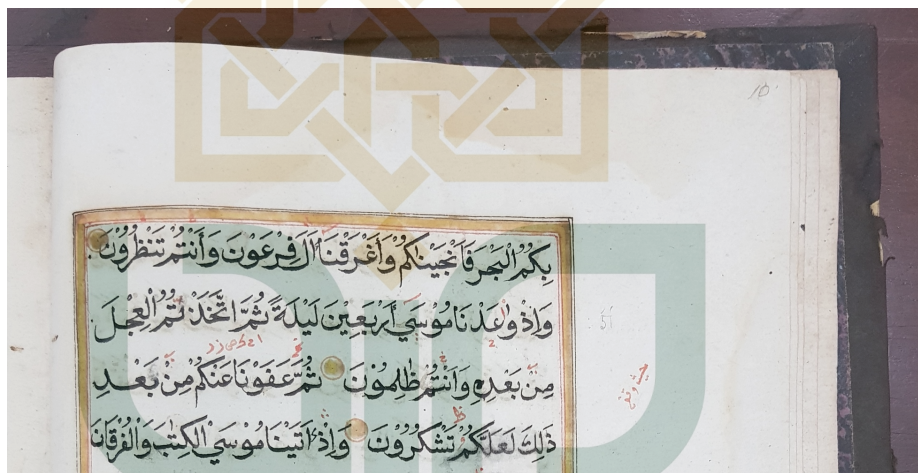 10
بِكُمُ الْبَحْرَ فَاَنْجَيْنَاكُمْ وَأَغْرَقْنَا اٰلَ فِرْعَوْنَ وَأَنْتُمْ تَنْظُرُوْنَ
وَاِذْ وٰاعَدْنَا مُوْسَي اَرْبَعِيْنَ لَيْلَةً ثُمَّ اتَّخَذْتُمُ الْعِجْلَ
مِنْ بَعْدِهِ وَاَنْتُمْ ظٰلِمُوْنَ ثُمَّ عَفَوْنَا عَنْكُمْ مِنْ بَعْدِ
ذٰلِكَ لَعَلَّكُمْ تَشْكُرُوْنَ وَاِذْ اٰتَيْنَا مُوْسَي الْكِتٰبَ وَالْفُرْقَانَ